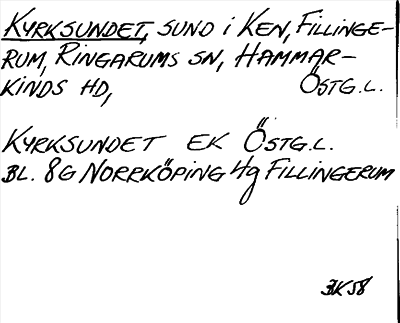 KYRKSUNDET, SUND i KEN, FILLINGE-
RUM, RINGARUMS SN, HAMMAR-
KINDS HD, ÖSTG.L.
KYRKSUNDET EK ÖSTG.L.
BL. 8G NORRKÖPING 4g FILLINGERUM